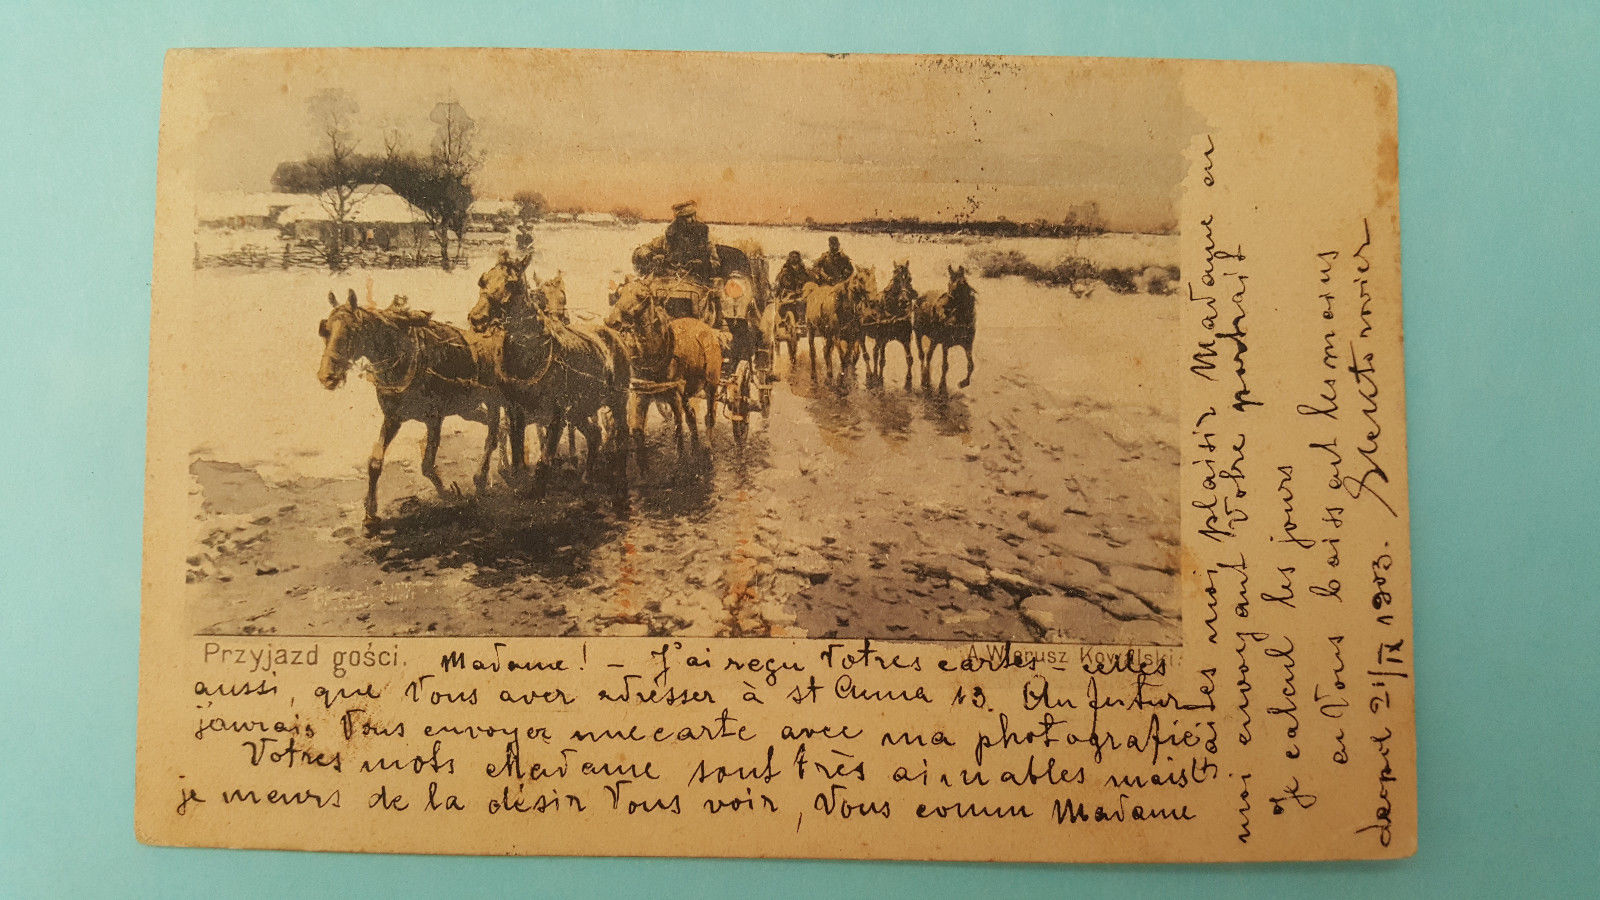 Przyjazd gości.
A. Wierusz Kowalski.
Madame! – J'ai reçu Votres cartes – celles
aussi, que Vous aver adrésser à st Anna 13. Au futur
j'aurais Vous envoyer une carte avec ma photografié
Votres mots Madame sont très aimables mais
je meurs de la désir Vous voir, Vous comm Madame
Faites moi plaisir Madame en
moi envoyant Votre portrait
Je calcul les jours
en Vous baissant les mains
21/IX 1903.